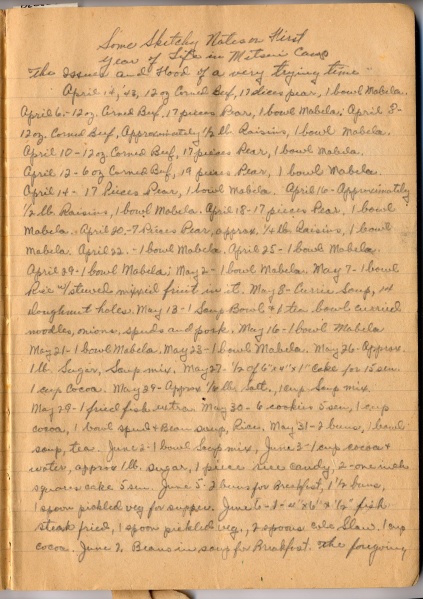 Some Sketchy Notes on First
Year of Life in Mitsui Camp
The Issues and Food of a very trying time
April 4, '43, 12 oz Corned Beef, 17 slices pear, 1 bowl Mabela.
April 6 - 12 oz. Corned Beef, 17 pieces Pear, 1 bowl Mabela. April 8 -
12 oz. Corned Beef, Approximately 1/2 lb Raisins, 1 bowl Mabela.
April 10 - 12 oz. Corned Beef, 17 pieces Pear, 1 bowl Mabela.
April 12 - 6 oz Corned Beef, 19 pieces Pear, 1 bowl Mabela.
April 14 - 17 Pieces Pear, 1 bowl Mabela. April 16 - Approximately
1/2 lb. Raisins, 1 bowl Mabela. April 18 - 17 pieces Pear, 1 bowl
Mabela. April 20 - 7 Pieces Pear, approx. 1/4 lb. Raisins, 1 bowl
Mabela. April 22. - 1 bowl Mabela. April 25 - 1 bowl Mabela
April 29 - 1 bowl Mabela. May 2 - 1 bowl Mabela. May 7 - 1 bowl
Rice w/ stewed mixed fruit in it. May 8 - Currie Soup, 14
doughnut holes. May 13 - 1 Soup Bowl & 1 tea bowl curried
noodles, onions, spuds and pork. May 16 - 1 bowl Mabela
May 21 - 1 bowl Mabela. May 23 - 1 bowl Mabela. May 26 - Approx.
1 lb. Sugar, Soup mix. May 27. 1/2 of 6" x 4" x 1" Cake for 15 sen.
1 cup Cocoa. May 29 - Approx 1/4 lb. Salt., 1 cup Soup mix.
May 29 - 1 fried fish extra. May 30 - 6 cookies 5 sen, 1 cup
cocoa, 1 bowl spud & Bean soup, Rice. May 31 - 2 buns, 1 bowl
soup, tea. June 2 - 1 bowl Soup mix, June 3 - 1 cup cocoa &
water, approx 1 lb. sugar, 1 piece rice candy, 2 - one inch
squares cake 5 sen. June 5 - 2 buns for Breakfast, 1 1/2 buns,
1 spoon pickled veg for supper. June 6 - 1 - 4" x 6" x 1/2" fish
steak fried, 1 spoon pickled veg., 2 spoons cole Slaw. 1 cup
cocoa. June 7. Beans in soup for Breakfast. The foregoing